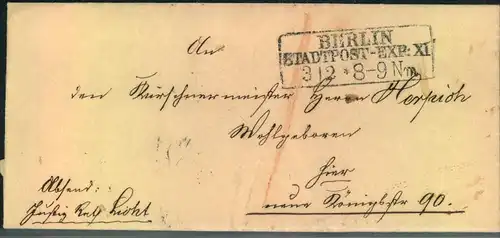 BERLIN
STADTPOST-EXP: XI
3 12 * 8-9 Nm
An
den Kürschnermeister Herrn Herpich
Wohlgeboren
hier
neue Königstr 90.
Absend:
Justiz Rath